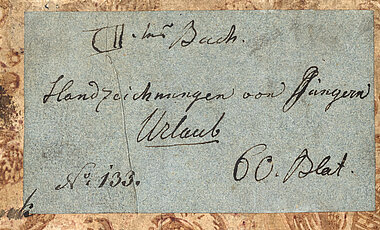 II. tes Buch.
Handzeichnungen von Jüngern
Urlaub
60. Blat.
No. 133.